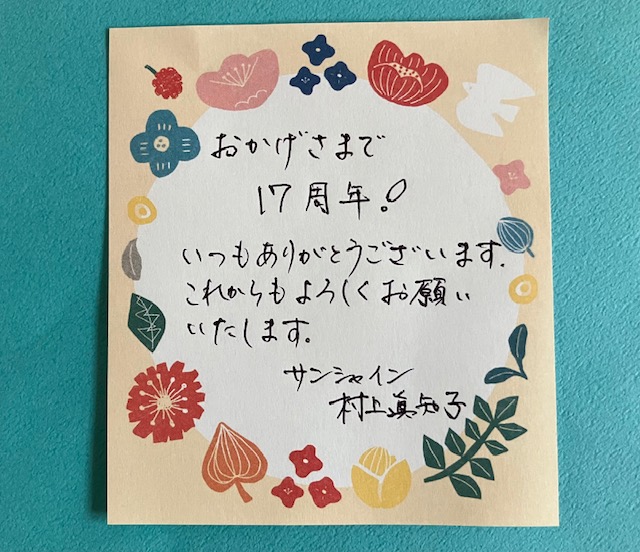 おかげさまで
17周年!
いつもありがとうございます.
これからもよろしくお願い
いたします.
サンシャイン
村上眞知子